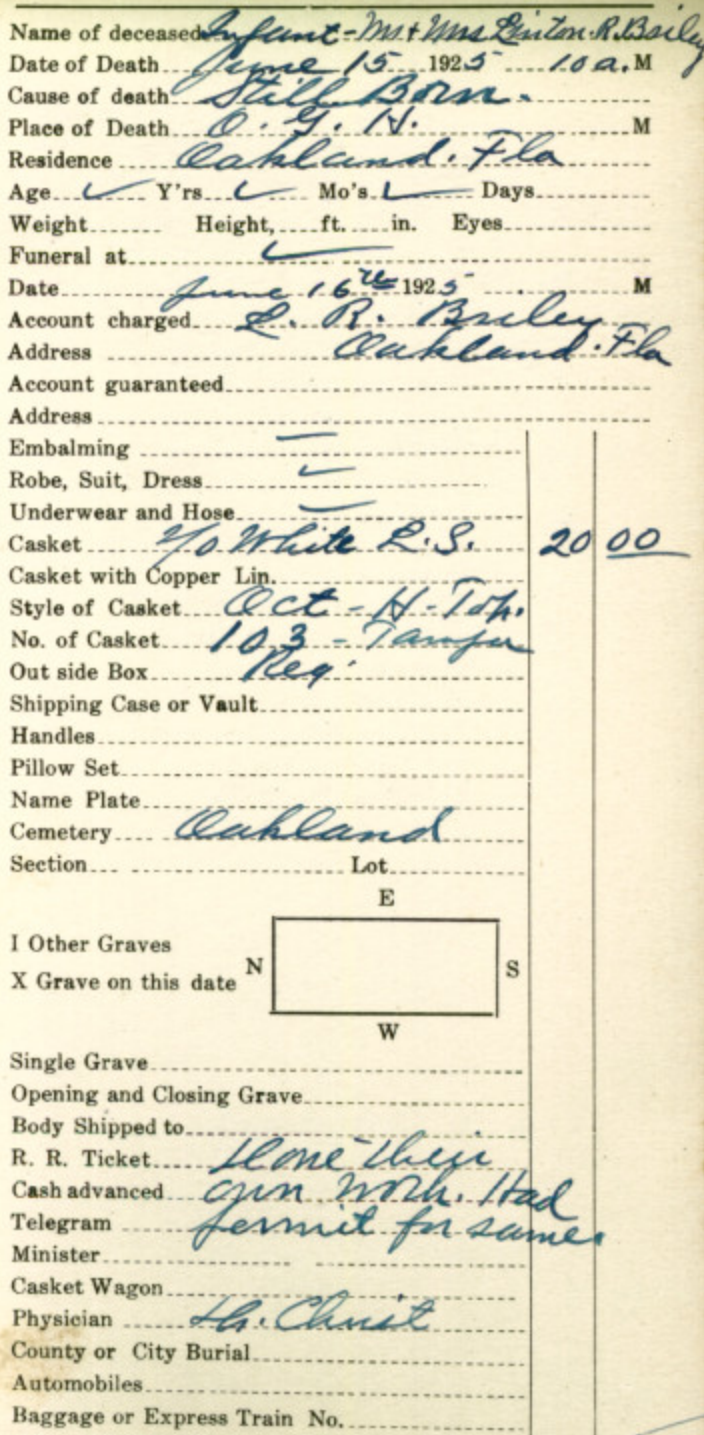 Name of deceased Infant - Mr & Mrs Linton. R. Briley
Date of Death June 15 1925 10 a. M
Cause of death Still Born.
Place of Death O. G. H. M
Residence Oakland. Fla
Age Y'rs Mo's Days
Weight Height, ft. in. Eyes
Funeral at
Date June 16th 1925 M
Account charged L. R. Briley
Address Oakland. Fla
Account guaranteed
Address
Embalming
Robe, Suit, Dress
Underwear and Hose
Casket 2/0 White L.S. 20 00
Casket with Copper Lin.
Style of Casket Oct - H - Top.
No. of Casket 103 - Tampa
Out side Box Reg.
Shipping Case or Vault
Handles
Pillow Set
Name Plate
Cemetery Oakland
Section Lot
E
I Other Graves
N S
X Grave on this date
W
Single Grave
Opening and Closing Grave
Body Shipped to
R. R. Ticket Done their
Cash advanced own work. Had
Telegram permit for same.
Minister
Casket Wagon
Physician Dr. Christ
County or City Burial
Automobiles
Baggage or Express Train No.